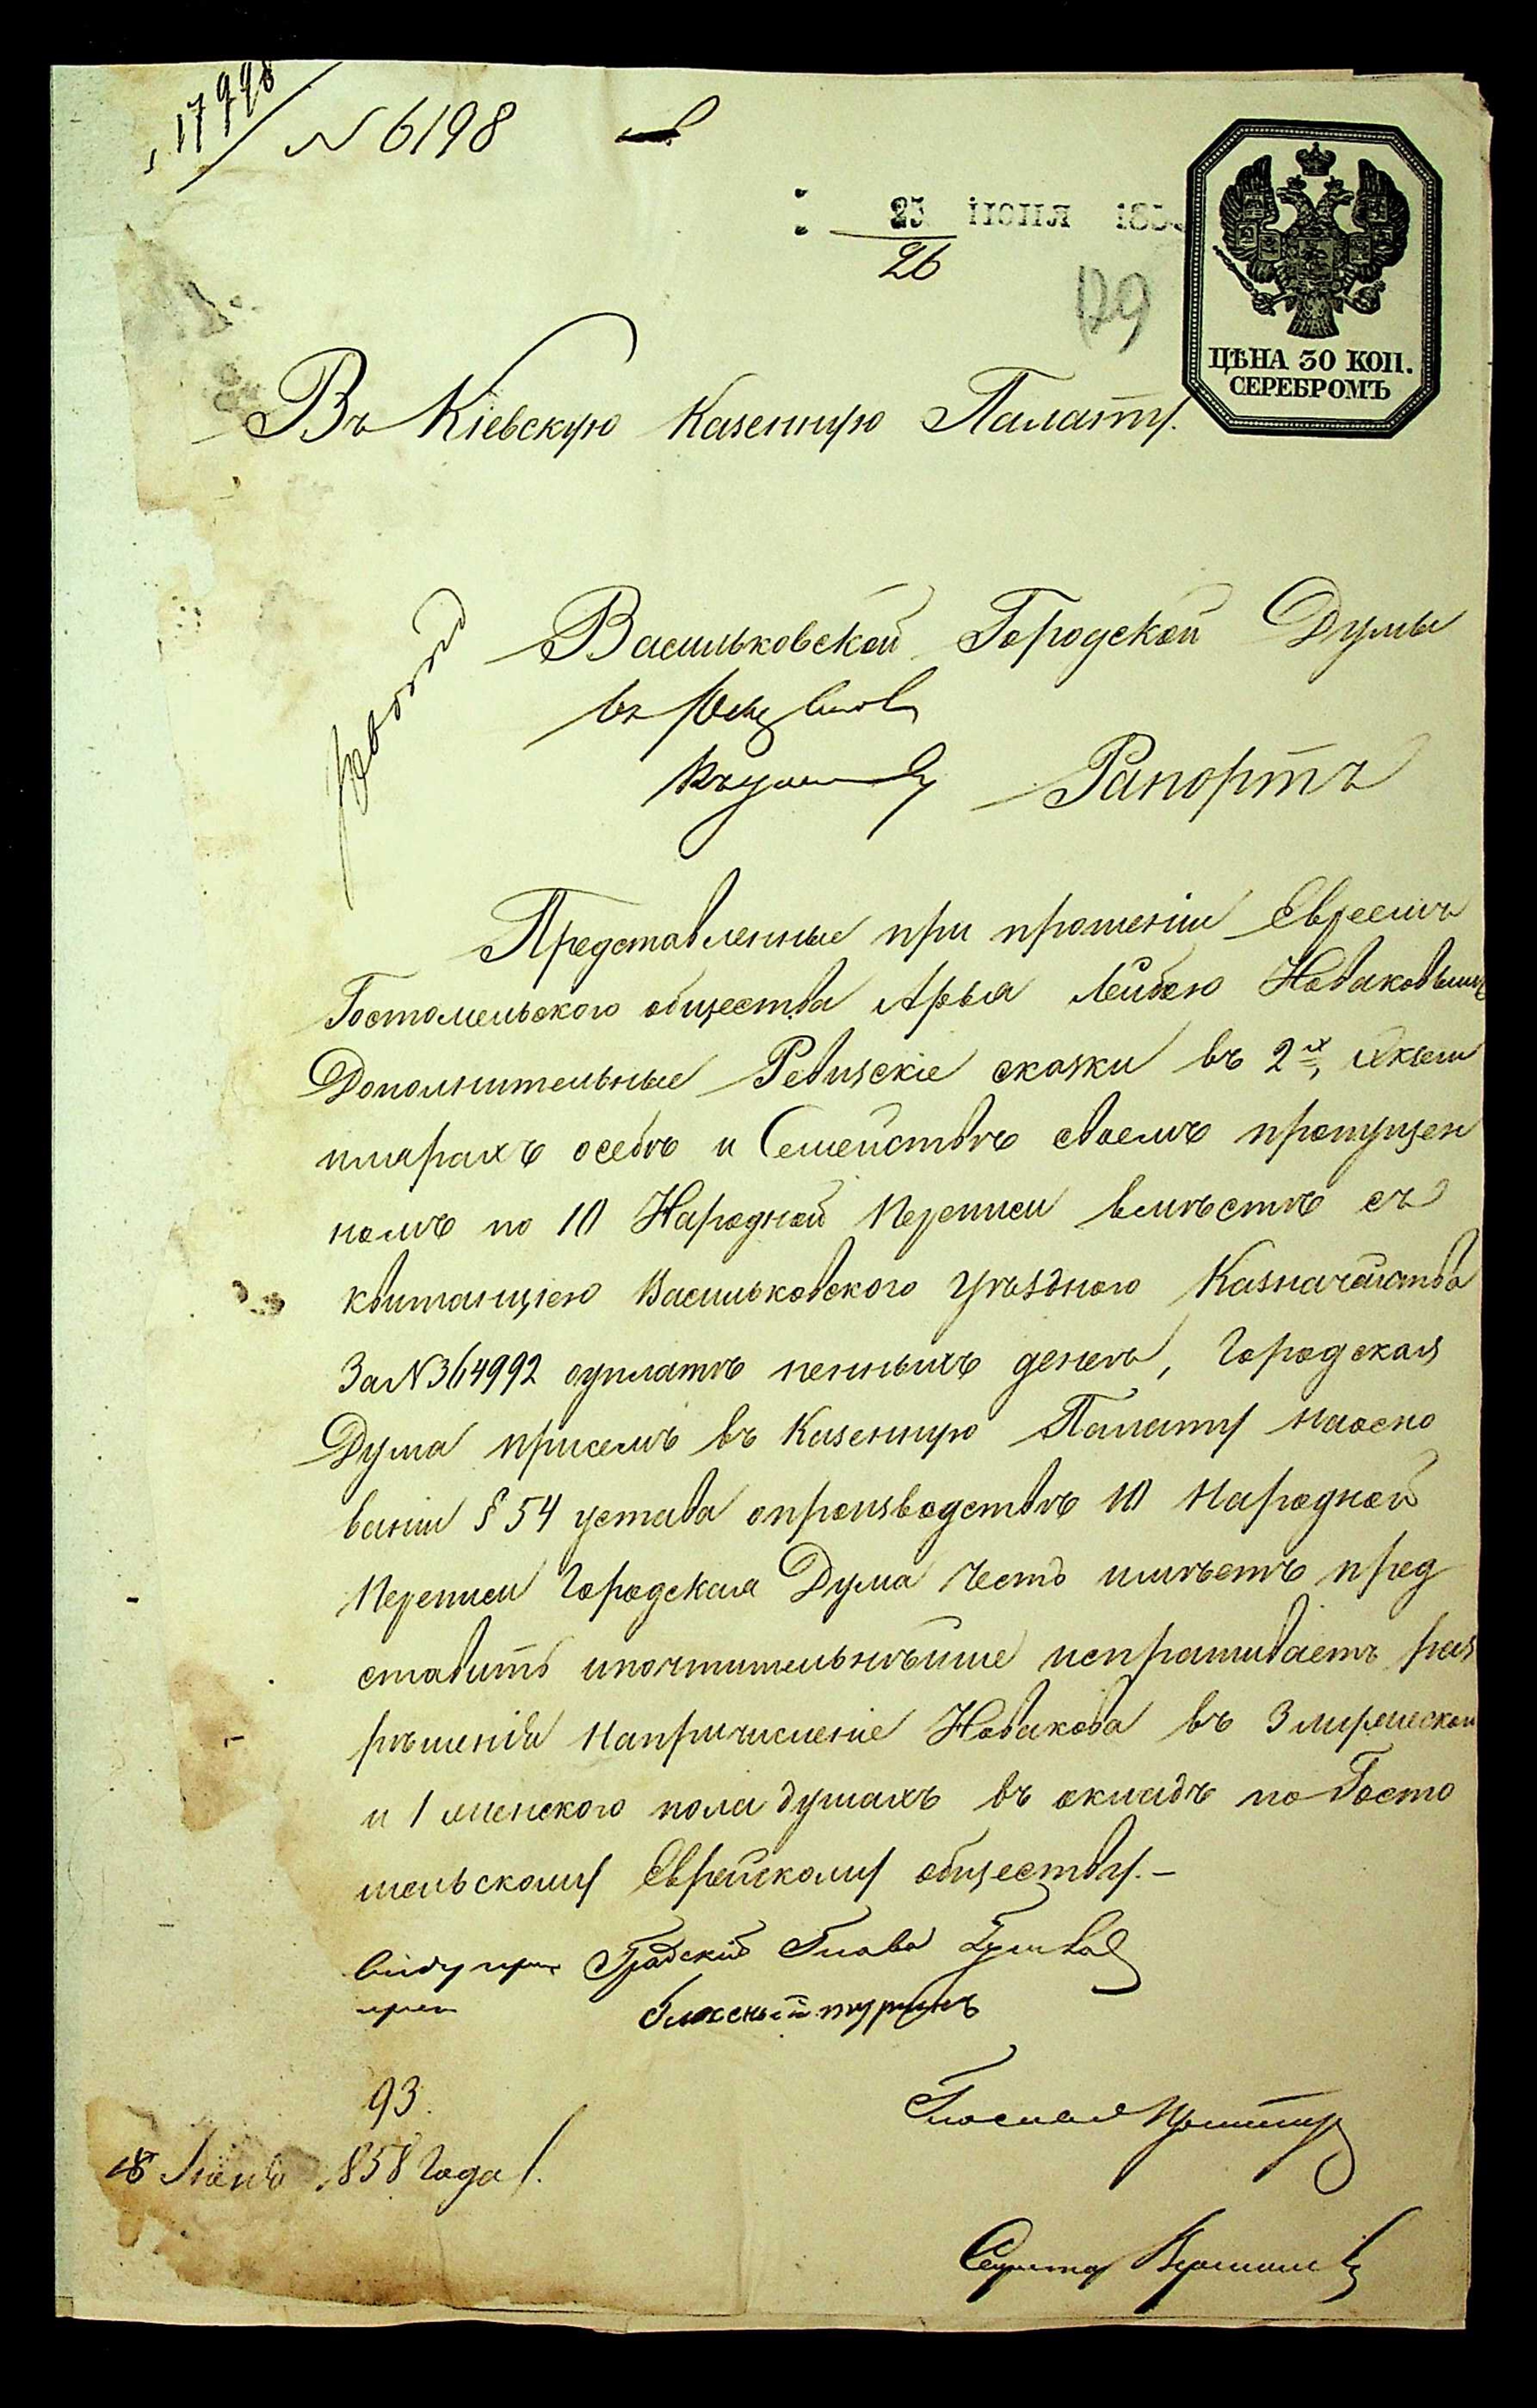 17998
N 6198
25 Іюня 185
26
129
ЦѢНА 30 КОП.
СЕРЕБРОМЪ
Въ Кіевскую Казенную Палату.
Васильковской Городской Думы
Рапортъ
Представленные при прошеніи Евреемъ
Гостомельского общества Арья Лейбою Новаковымъ
Дополнительные Ревизскіе сказки въ 2х, Экзем
плярахъ о себѣ и Семействѣ своемъ пропущен
номъ по 10 Народной Переписи вмѣстѣ съ
квитанціею Васильковского Уѣздного Казначейства
За N 364992 оуплатѣ пенныхъ денегъ, Городская
Дума присемъ въ Казенную Палату наосно
ваніи § 54 устава опроизводствѣ 10 Народной
Переписи Городская Дума Честь имѣетъ пред
ставить ипочтительнѣйше испрашиваетъ раз
рѣшенія напричисленіе Новакова въ 3 мужеской
и 1 женского пола душахъ въ окладъ по Госто
мельскому Еврейскому обществу.-
Градскій Глава
Гласный
93.
18 Іюня 1858 Года